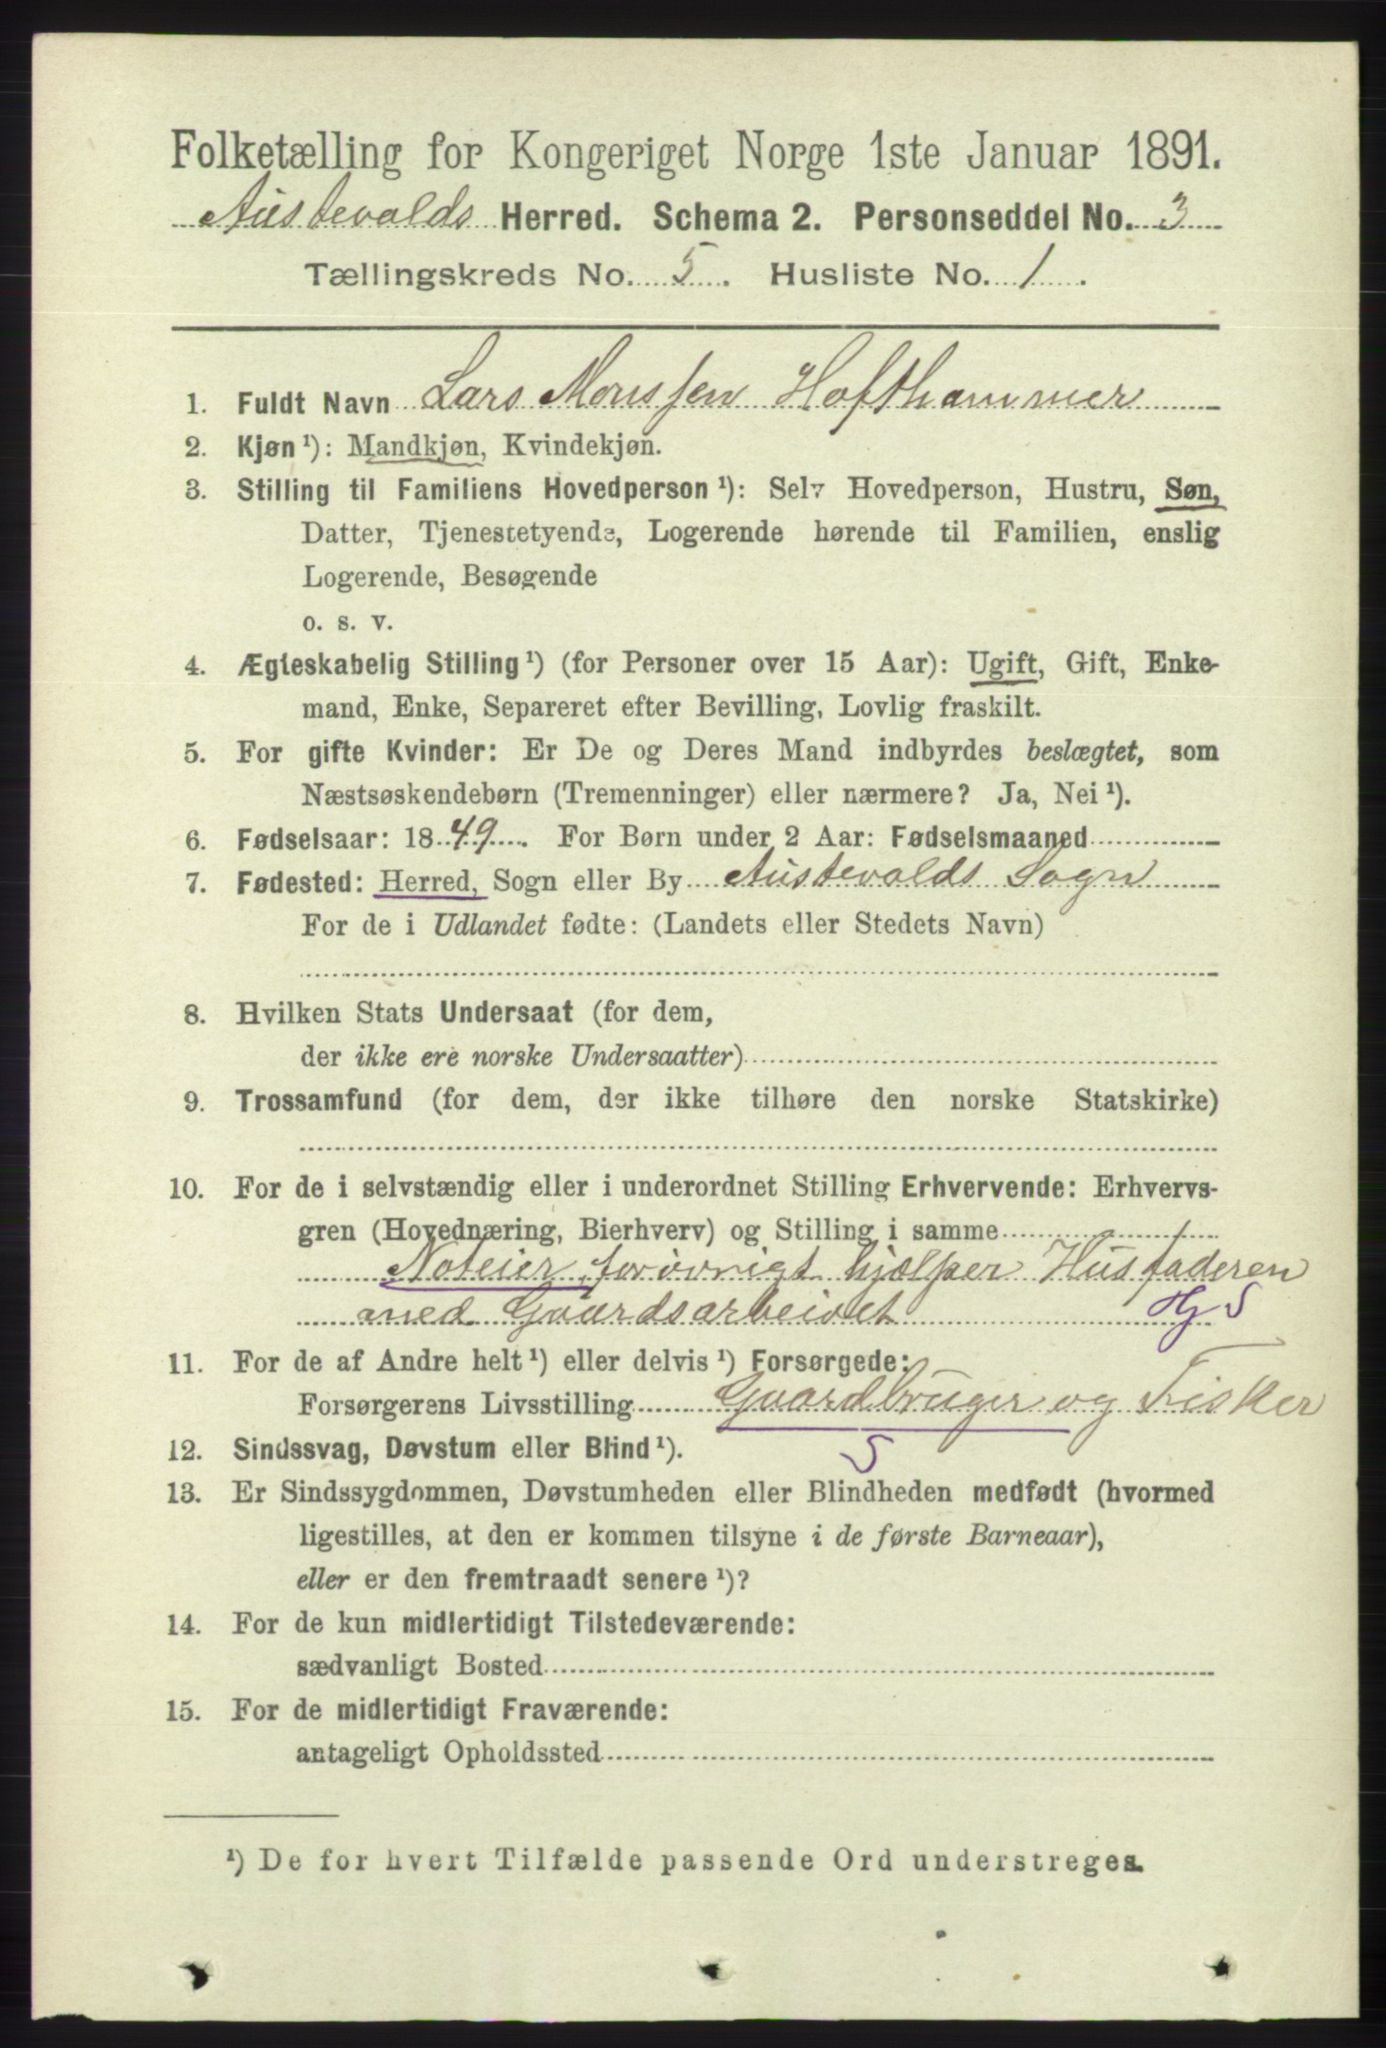 Folketælling for Kongeriget Norge 1ste Januar 1891.
Austevolds Herred. Schema 2. Personseddel No. 3
Tællingskreds No. 5. Husliste No. 1.
1. Fuldt Navn Lars Monssen Hofthammer
2. Kjøn ¹): Mandkjøn, Kvindekjøn.
3. Stilling til Familiens Hovedperson ¹): Selv Hovedperson, Hustru, Søn,
Datter, Tjenestetyende, Logerende hørende til Familien, enslig
Logerende, Besøgende
o. s. v.
4. Ægteskabelig Stilling ¹) (for Personer over 15 Aar): Ugift, Gift, Enke-
mand, Enke, Separeret efter Bevilling, Lovlig fraskilt.
5. For gifte Kvinder: Er De og Deres Mand indbyrdes beslægtet, som
Næstsøskendebørn (Tremenninger) eller nærmere? Ja, Nei ¹).
6. Fødselsaar: 1849. For Børn under 2 Aar: Fødselsmaaned
7. Fødested: Herred, Sogn eller By Austevolds Sogn
For de i Udlandet fødte: (Landets eller Stedets Navn)
8. Hvilken Stats Undersaat (for dem,
der ikke ere norske Undersaatter)
9. Trossamfund (for dem, der ikke tilhøre den norske Statskirke)
10. For de i selvstændig eller i underordnet Stilling Erhvervende: Erhvervs-
gren (Hovednæring, Bierhverv) og Stilling i samme
Noteier, forövrigt hjælper Husfaderen
med Gaardsarbeidet Hj S
11. For de af Andre helt ¹) eller delvis ¹) Forsørgede:
Forsørgerens Livsstilling Gaardbruger og Fisker
S
12. Sindssvag, Døvstum eller Blind ¹).
13. Er Sindssygdommen, Døvstumheden eller Blindheden medfødt (hvormed
ligestilles, at den er kommen tilsyne i de første Barneaar),
eller er den fremtraadt senere ¹)?
14. For de kun midlertidigt Tilstedeværende:
sædvanligt Bosted
15. For de midlertidigt Fraværende:
antageligt Opholdssted
¹) De for hvert Tilfælde passende Ord understreges.